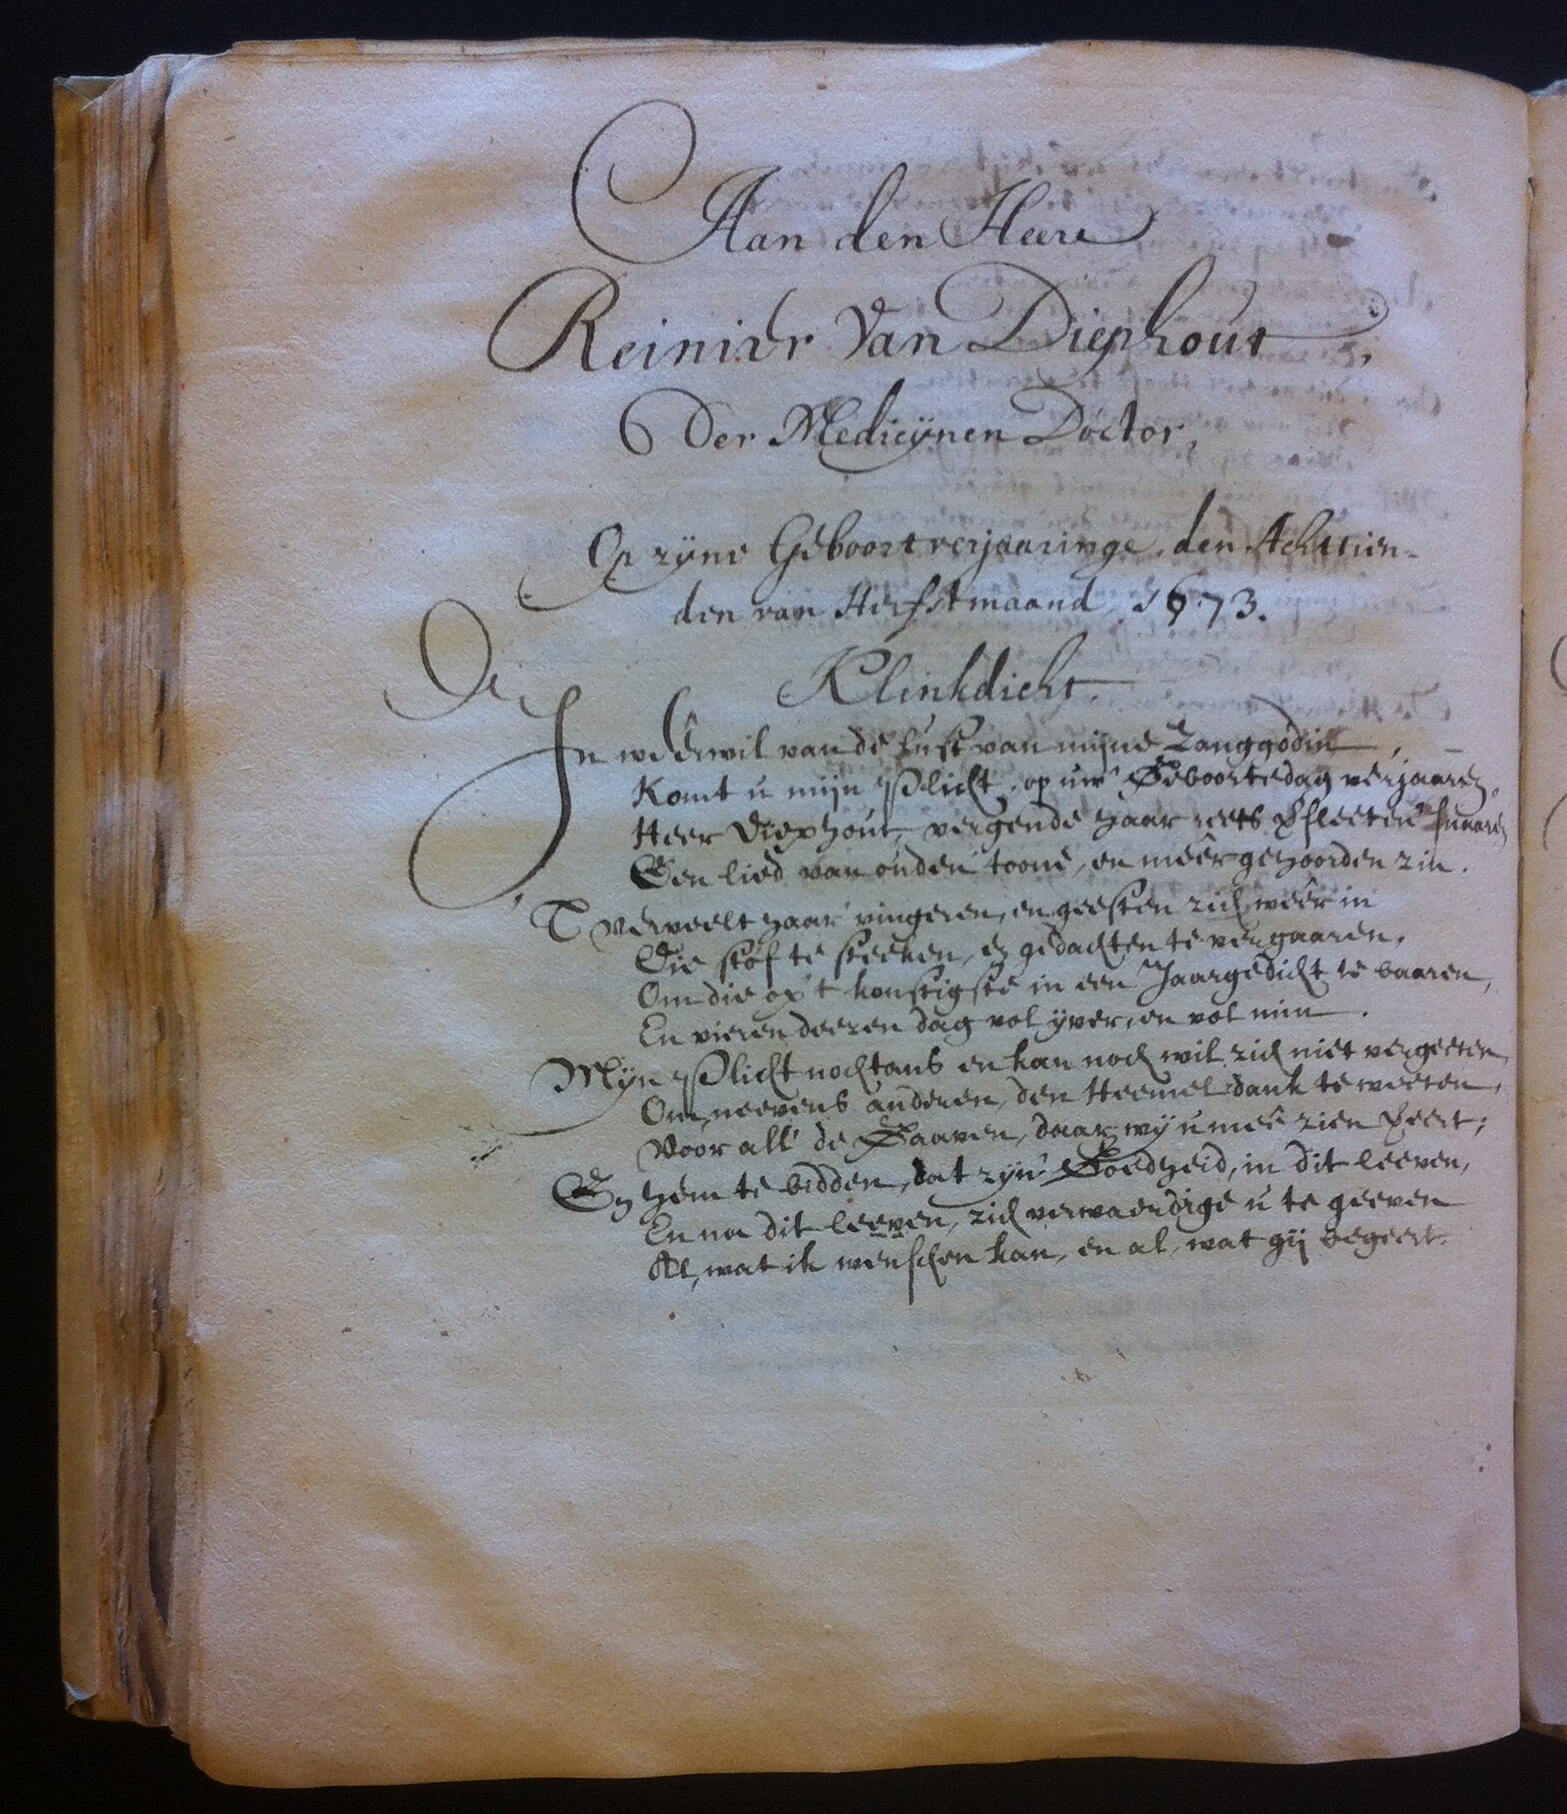 Aan den Heere
Reinier Van Diephout,
Der Medicynen Doctor,
Op zyne Geboortverjaaringe, den Achttien-
den van Herfstmaand, 1673.
Klinkdicht.
In weêrwil van de lust van mijne Zanggodin,
Komt u mijn Plicht, op uw' Geboortedag verjaaren,
Heer Diephout, vergende haar reets snaaren
Een lied van ouden toone, en meêr gehoorden zin.
'T verveelt haar' vingeren, en geesten zich weêr in
Die stof te steeken, en gedachten te vergaaren,
Om die op 't konstigste in een Jaargedicht te baaren,
En vieren deezen dag vol yver, en vol min.
Mijn Plicht nochtans en kan noch wil zich niet vergeeten,
Om, neevens anderen, den Heemel dank te weeten,
Voor all' de Gaaven, daar wy u meê zien ;
En hem te bidden, dat zijn' Goedheid, in dit leeven,
En na dit leeven, zich verwaerdige u te geeven
Al, wat ik wenschen kan, en al, wat gij begeert.